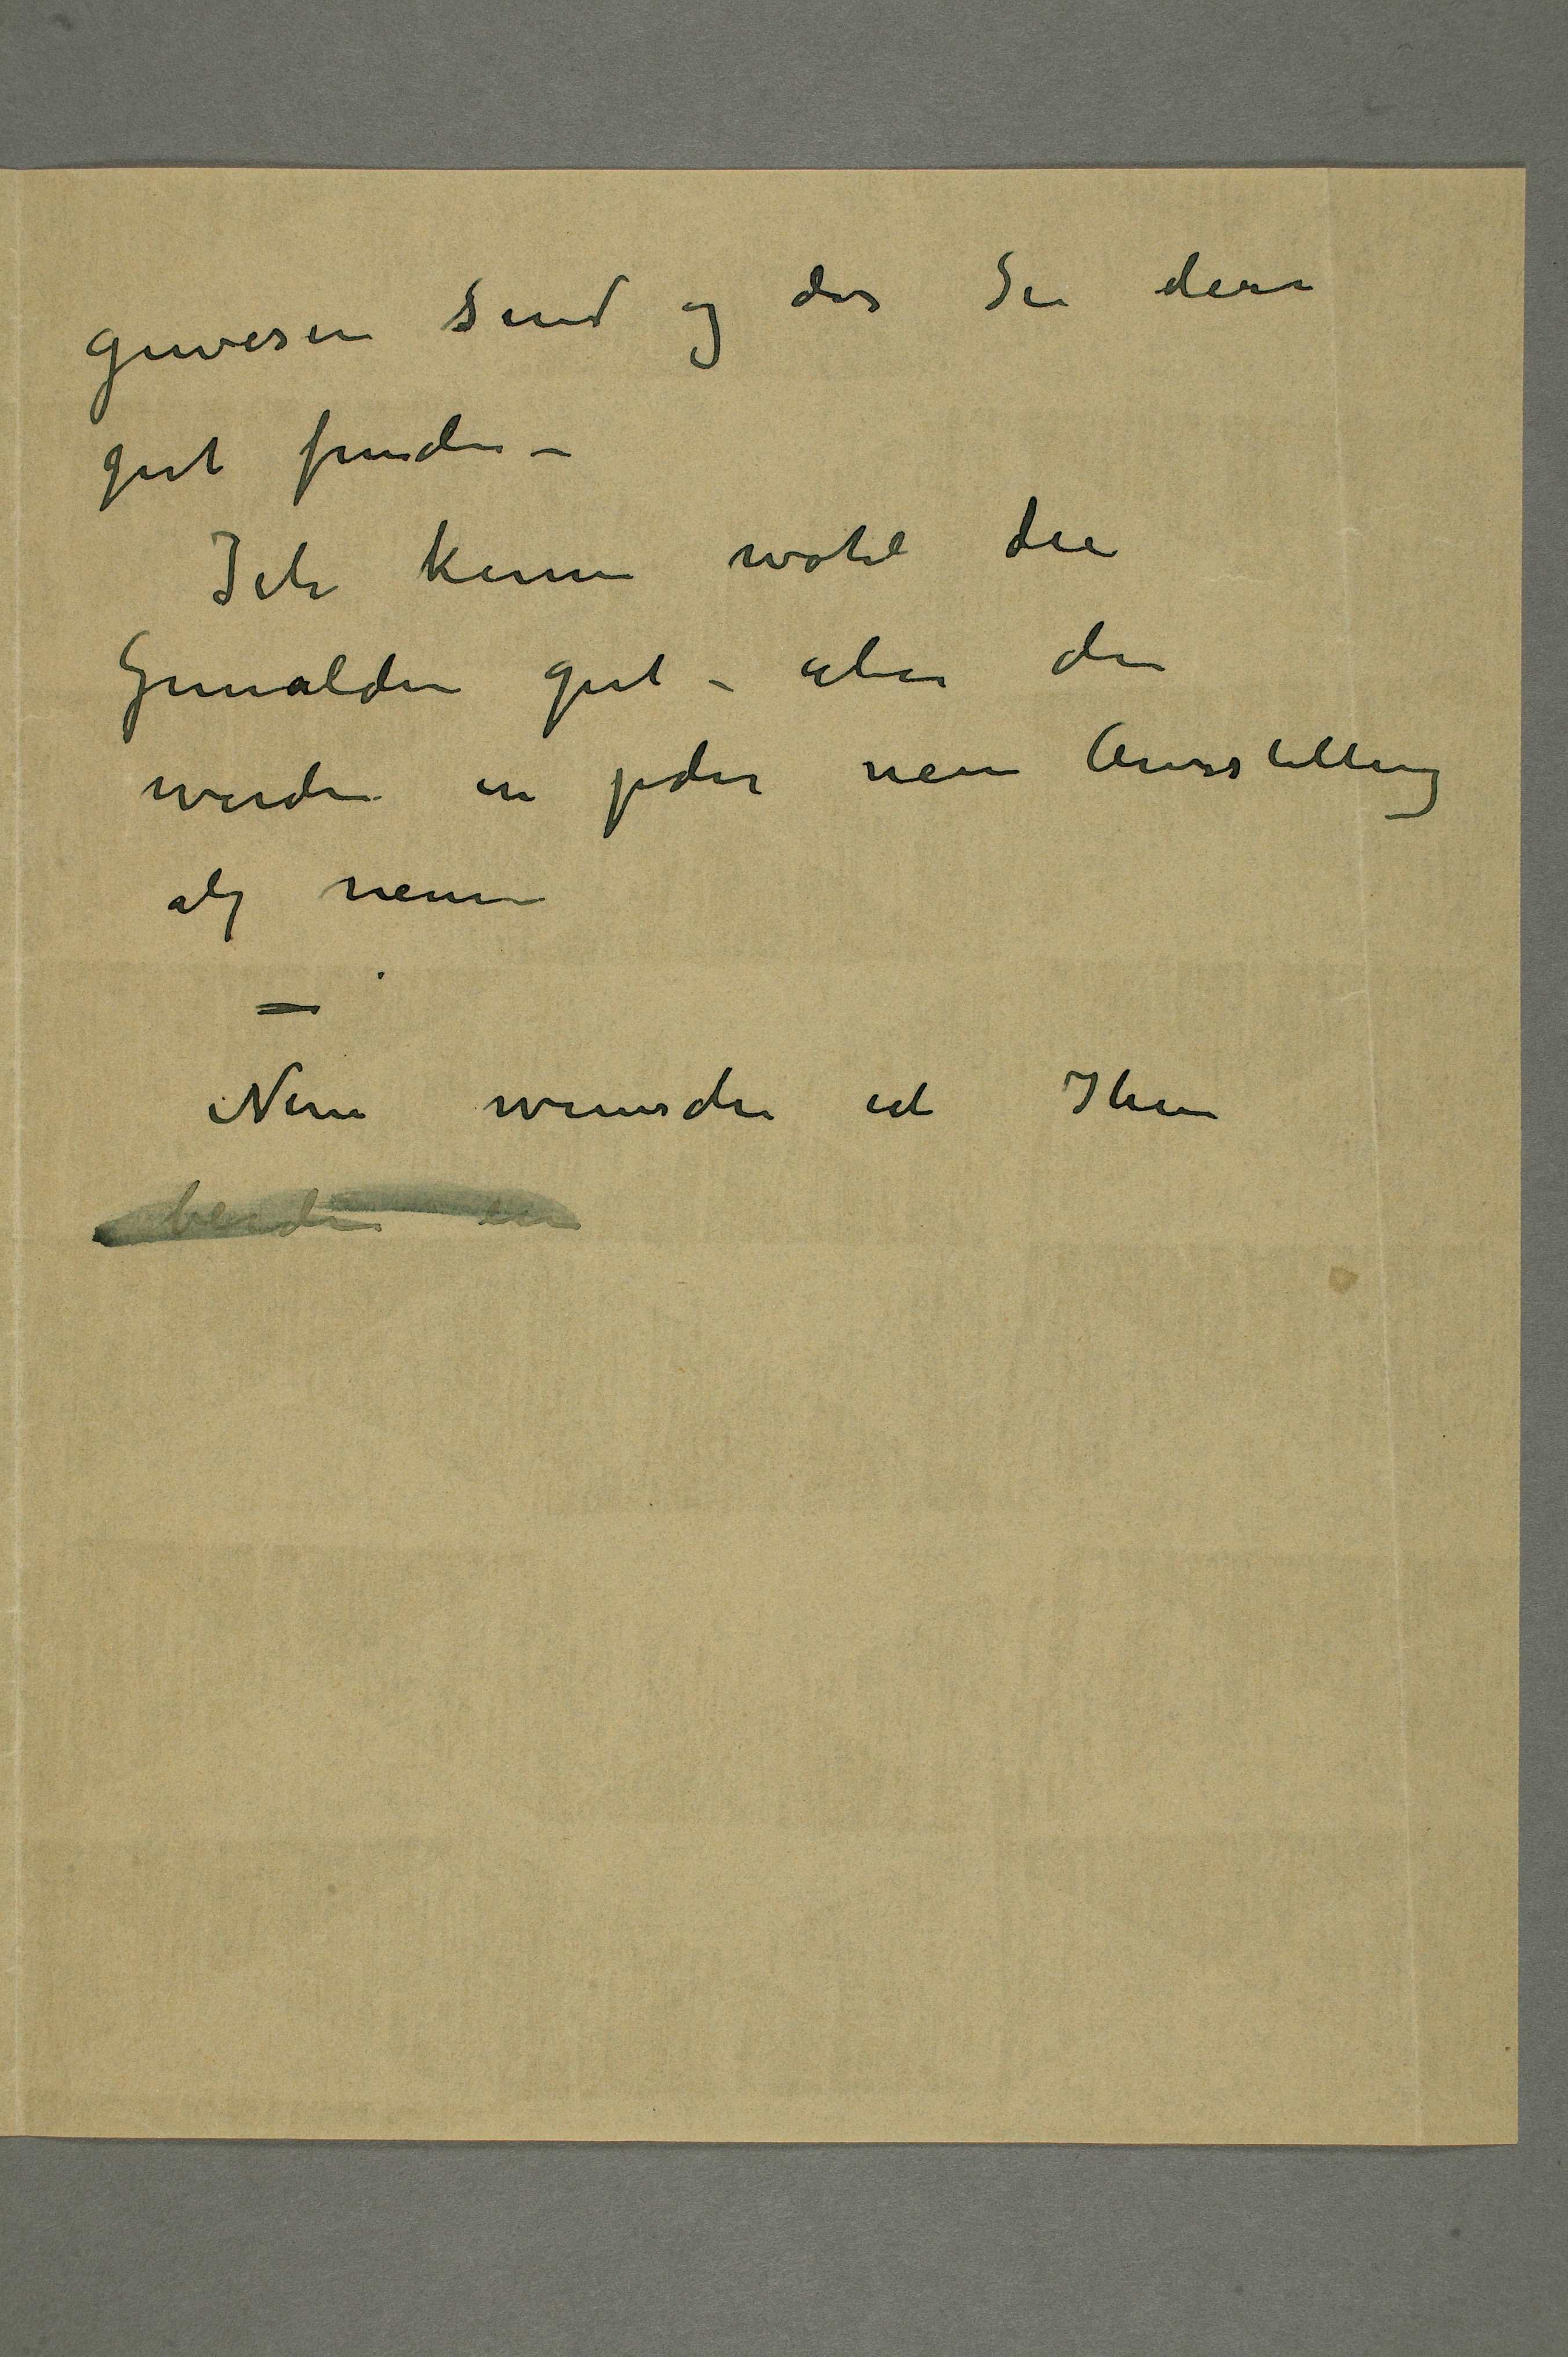 gewesen sind og das Sie dem
gut finden –
Ich kenne wohl die
Gemälden gut – aber die
werden in jeder neuen Ausstellung
als neuen
–
Nun wunsche ich Ihnen
beiden ein